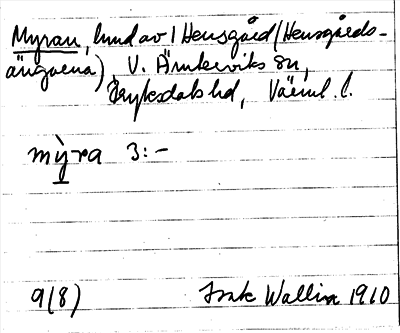 Myran, hund av 1 Hensgård (Hensgårds-
ängarna), V. Ämterviks sn,
Fryksdals hd, Värml. l.
mỳra 3:-
9(8) Wallin 1910